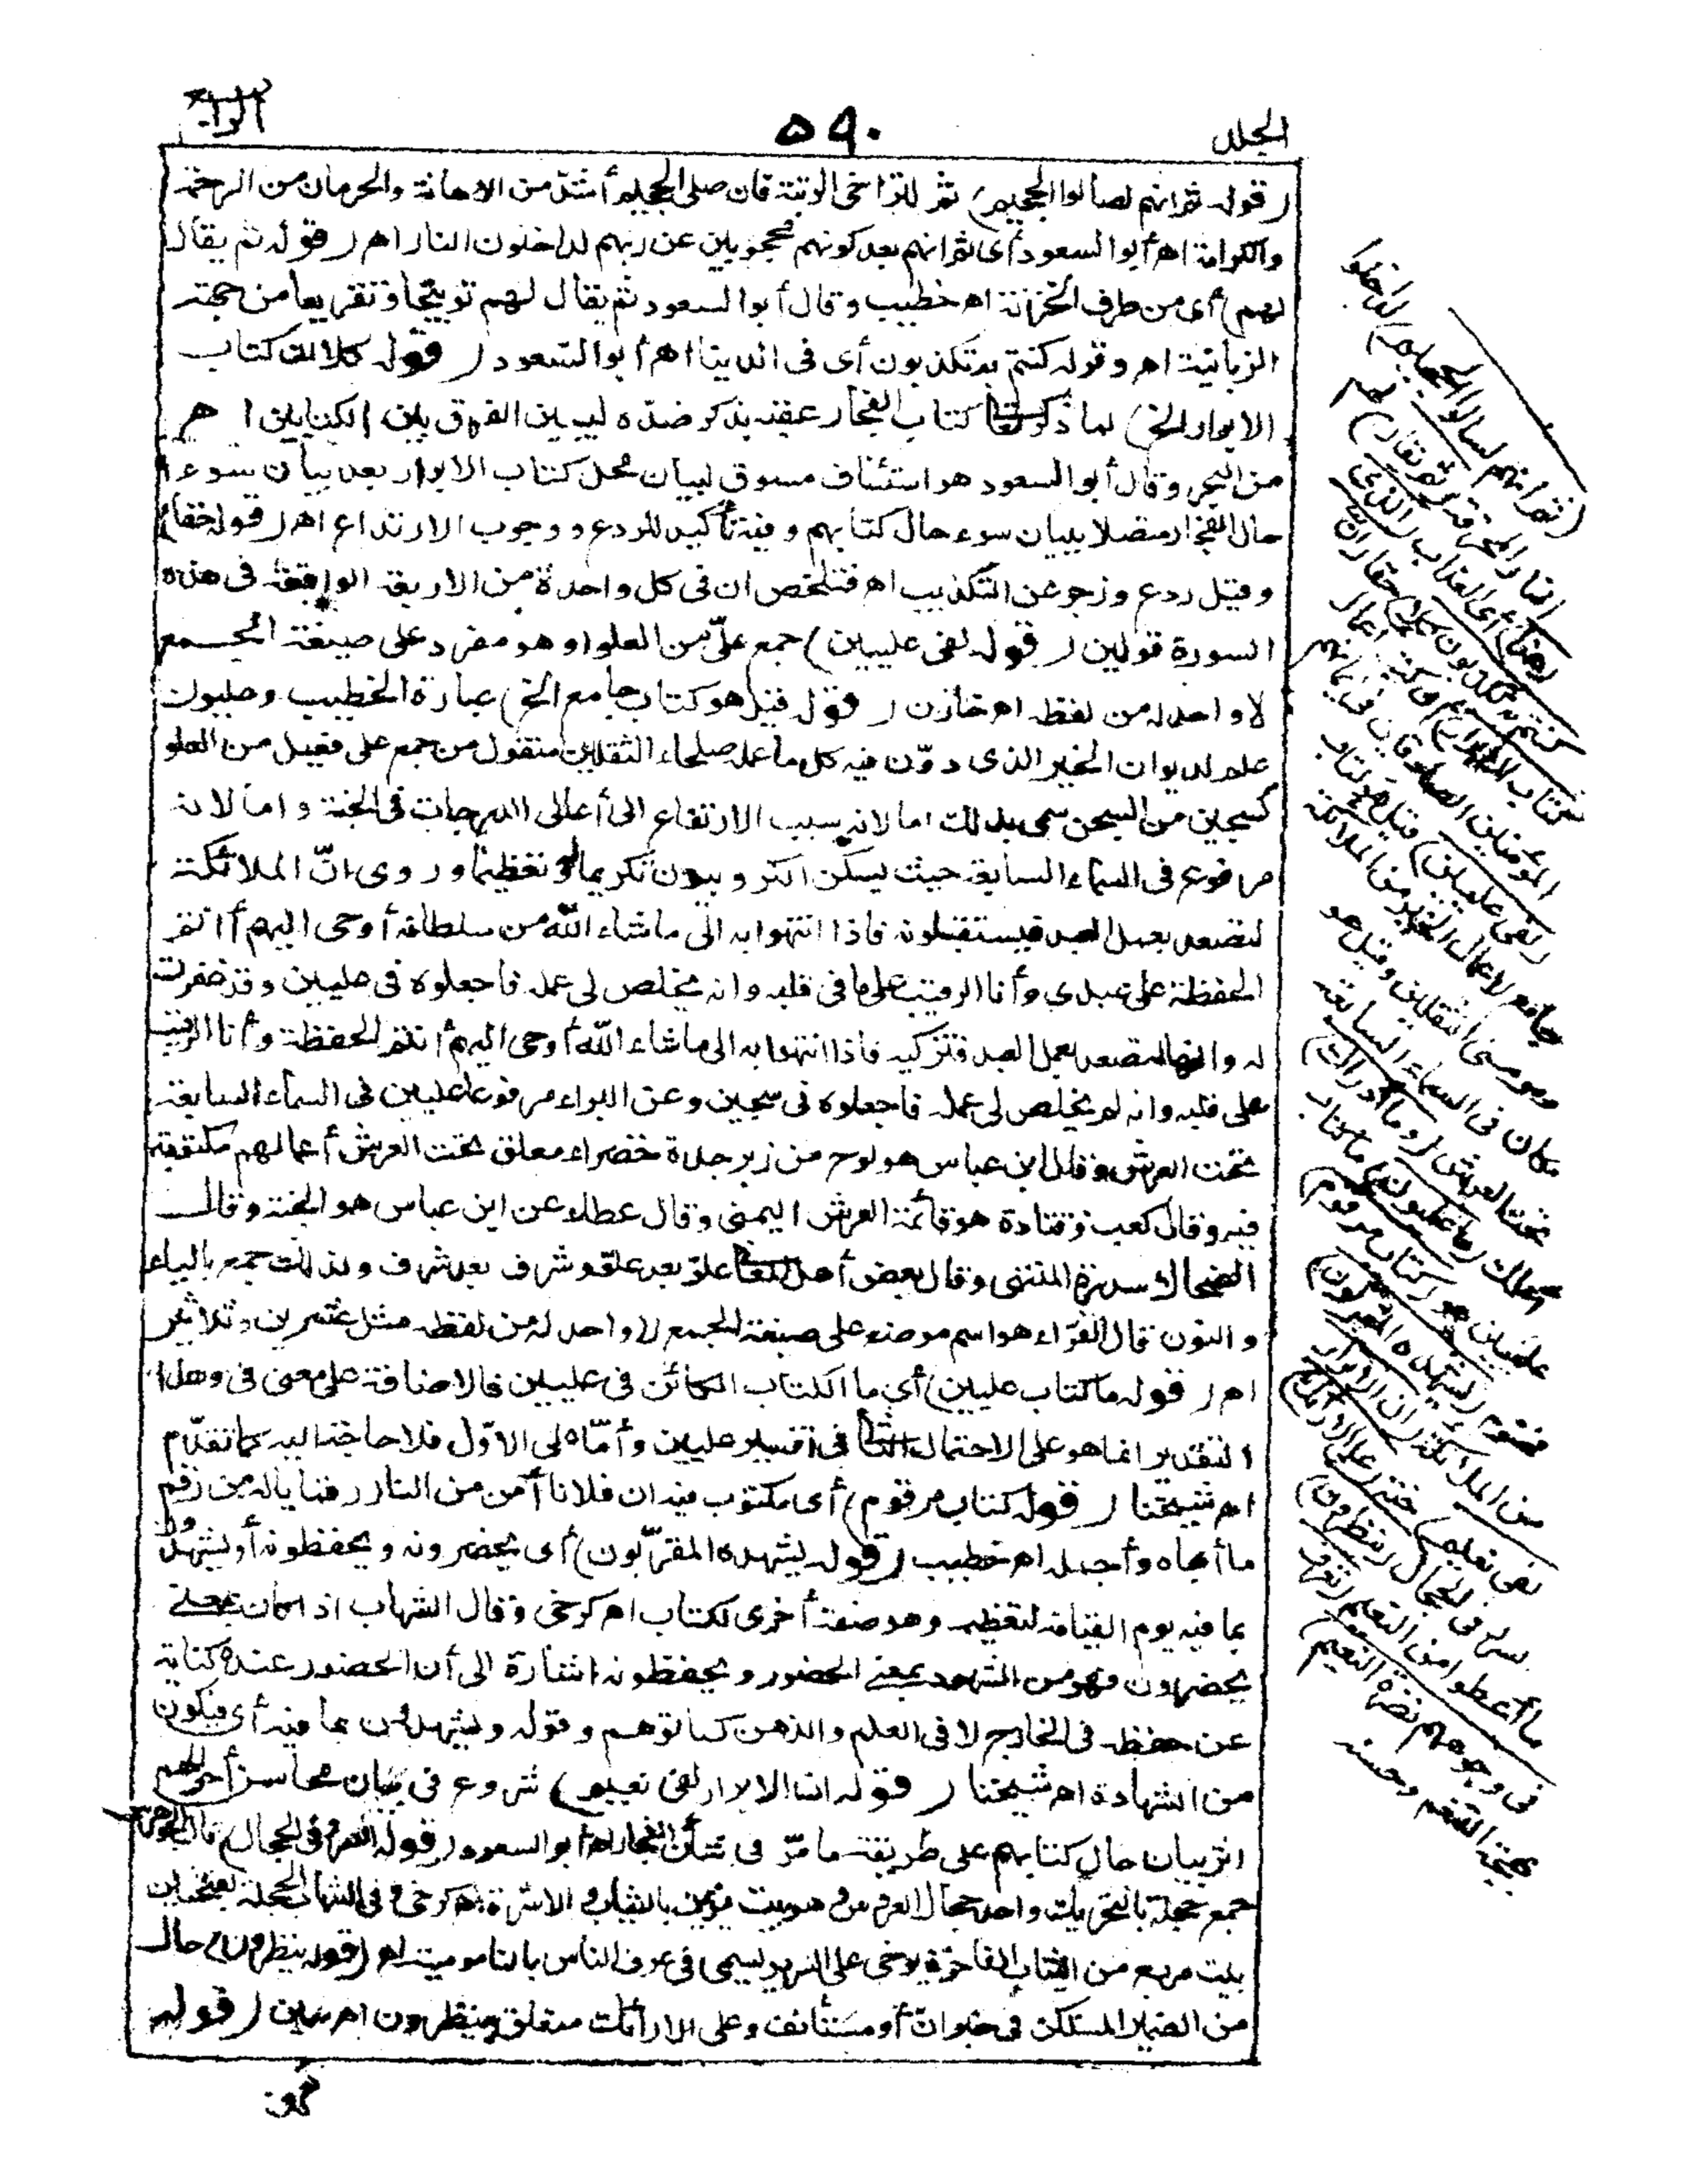 الجلد
٥٩٠
الرابع
(قوله ثم انهم لصالوا الجحيم) ثم للتراخى الرتبة فان صلى الجحيم أشد من الاهانة والحرمان من الرحمة
والكرامة اه أبو السعود أى ثم انهم بعد كونهم محجوبين عن ربهم لداخلون النار اه (قوله ثم يقال
لهم) أى من طرف الخزنة اه خطيب وقال أبو السعود ثم يقال لهم توبيخا وتقريعا من جهة
الزبانية اه وقوله كنتم به تكذبون أى فى الدنيا اه أبو السعود (قوله كلا ان كتاب
الابرار الخ) لما ذكر كتاب الفجار عقبه بذكر ضده ليبين الفرق بين الكتابين اه
من البحر وقال أبو السعود هو استئناف مسوق لبيان محل كتاب الابرار بعد بيان سوء
حال الفجار متصلا ببيان سوء حال كتابهم وفيه تأكيد للردع ووجوب الارتداع اه (قوله حقا)
وقيل ردع وزجر عن التكذيب اه فتلخص ان فى كل واحدة من الاربعة الواقعة فى هذه
السورة قولين (قوله لفى عليين) جمع علىّ من العلو او هو مفرد على صيغة الجمع
لا واحد له من لفظه اه خازن (قوله قيل هو كتاب جامع الخ) عبارة الخطيب وعليون
علم لديوان الخير الذى دوّن فيه كل ما عمله صلحاء الثقلين منقول من جمع على فعيل من العلو
كسجين من السجن سمى بذلك اما لانه سبب الارتفاع الى أعالى الدرجات فى الجنة واما لانه
مرفوع فى السماء السابعة حيث يسكن الكروبيون تكريما له وتعظيما وروى انّ الملائكة
لتصعد بعمل العبد فيستقبلونه فاذا انتهوا به الى ما شاء الله من سلطانه أوحى اليهم أانتم
الحفظة على عبدى وأنا الرقيب على ما فى قلبه وانه يخلص لى عمله فاجعلوه فى عليين وقد غفرت
له وانها لتصعد بعمل العبد فتزكيه فاذا انتهوا به الى ما شاء الله أوحى اليهم أانتم الحفظة وأنا الرقيب
على قلبه وانه لم يخلص لى عمله فاجعلوه فى سجين وعن البراء مرفوعا عليين فى السماء السابعة
تحت العرش وقال ابن عباس هو لوح من زبرجدة خضراء معلق تحت العرش أعمالهم مكتوبة
فيه وقال كعب وقتادة هو قائمة العرش اليمنى وقال عطاء عن ابن عباس هو الجنة وقال
الضحاك سدرة المنتهى وقال بعض أهل المعانى علوّ بعد علوّ وشرف بعد شرف ولذلك جمع بالياء
والنون قال الفرّاء هو اسم موضوع على صيغة الجمع لا واحد له من لفظه مثل عشرين وثلاثين
اه (قوله ما كتاب عليين) أى ما الكتاب الكائن فى عليين فالاضافة على معنى فى وهذا
التقدير انما هو على الاحتمال الثانى فى تفسير عليين وأمّا على الاوّل فلا حاجة اليه كما تقدّم
اه شيخنا (قوله كتاب مرقوم) أى مكتوب فيه ان فلانا أمن من النار رقما ياله من رقم
ما أبهاه وأجمله اه خطيب (قوله يشهده المقرّبون) أى يحضرونه ويحفظونه أو يشهدون
بما فيه يوم القيامة لتعظيمه وهو صفة أخرى لكتاب اه كرخى وقال الشهاب اذ اكان بمعنى
يحضرون فهو من الشهود بمعنى الحضور ويحفظونه اشارة الى أن الحضور عنده كناية
عن حفظه فى الخارج لا فى العلم والذهن كما توهم وقوله ويشهدون بما فيه أى فيكون
من الشهادة اه شيخنا (قوله ان الابرار لفى نعيم) شروع فى بيان محاسن أحوالهم
اثر بيان حال كتابهم على طريقة ما مرّ فى شأن الفجار اه أبو السعود (قوله السرر فى الحجال) قال الجوهرى
جمع حجلة بالتحريك واحد حجال العروس وهو بيت يزين بالثياب والاسرة اه كرخى وفى الشهاب الحجلة بفتحتين
بيت مربع من الثياب الفاخرة يرخى على السرير يسمى فى عرف الناس بالناموسية اه (قوله ينظرون) حال
من الضمير المستكن فى خبر انّ أو مستأنف وعلى الارائك متعلق بينظرون اه سمين (قوله
(ثم انهم لصالوا الجحيم) لداخلو
النار المحرقة (ثم يقال) لهم
(هذا) أى العذاب (الذى
كنتم به تكذبون كلا) حقا (ان
كتاب الابرار) أى كتب اعمال
المؤمنين الصادقين فى ايمانهم
(لفى عليين) قيل هو كتاب
جامع لاعمال الخير من الملائكة
ومؤمنى الثقلين وقيل هو
مكان فى السماء السابعة
تحت العرش (وما أدراك)
اعلمك (ما عليون) ما كتاب
عليين هو (كتاب مرقوم)
مختوم (يشهده المقربون)
من الملائكة (ان الابرار
لفى نعيم) جنة (على الارائك)
السرر فى الحجال (ينظرون)
ما أعطوا من النعيم (تعرف
فى وجوههم نضرة النعيم)
بهجة التنعم وحسنه